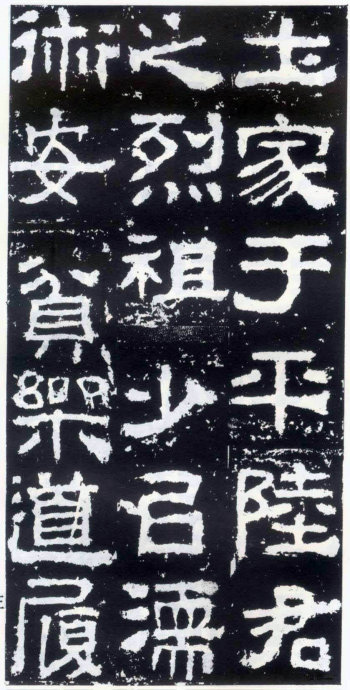 土家于平陸君
之烈祖少㠯濡
術安貧樂道履